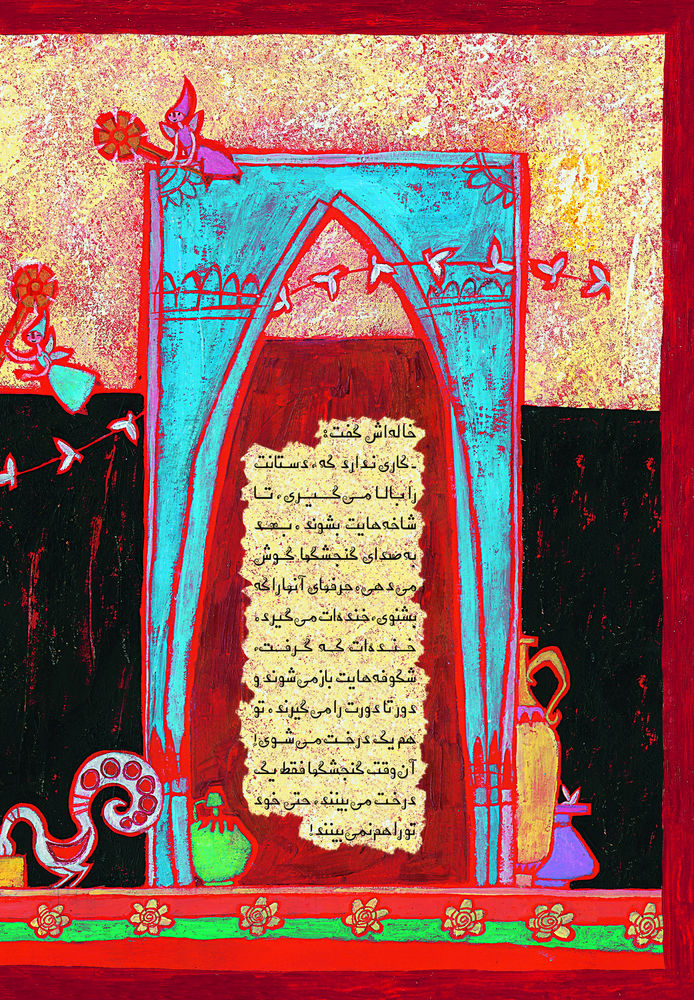 خاله‌اش گفت:
ـ کاری ندارد که، دستانت
را بالا می‌گیری، تا
شاخه‌هایت بشوند، بعد
به صدای گنجشکها گوش
می‌دهی، حرفهای آنها را که
بشنوی، خنده‌ات می‌گیرد،
خنده‌ات که گرفت،
شکوفه‌هایت باز می‌شوند و
دور تا دورت را می‌گیرند، تو
هم یک درخت می‌شوی!
آن وقت گنجشکها فقط یک
درخت می‌بینند، حتی خود
تو را هم نمی‌بینند!